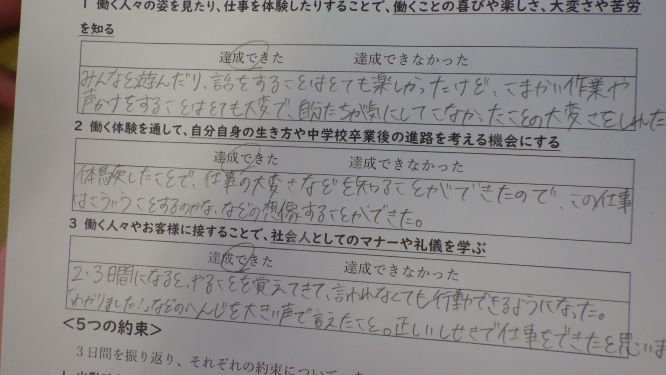 1 働く人々の姿を見たり、仕事を体験したりすることで、働くことの喜びや楽しさ、大変さや苦労
を知る
達成できた 達成できなかった
みんなと遊んだり、話をすることはとても楽しかったけど、こまかい作業や
声かけをすることはとても大変で、自分たちが気にしてこなかったことの大変さをしれた
2 働く体験を通して、自分自身の生き方や中学校卒業後の進路を考える機会にする
達成できた 達成できなかった
体験したことで、仕事の大変さなどを知ることができたので、この仕事
はこういうことをするのかな、などの想像することができた。
3 働く人々やお客様に接することで、社会人としてのマナーや礼儀を学ぶ
達成できた 達成できなかった
2・3日間になると、やることを覚えてきて、言われなくても行動できるようになった。
「わかりました!」などのへんじを大きい声で言えたこと。正しいしせきで仕事をできたと思いま
<5つの約束>
3日間を振り返り、それぞれの約束について、